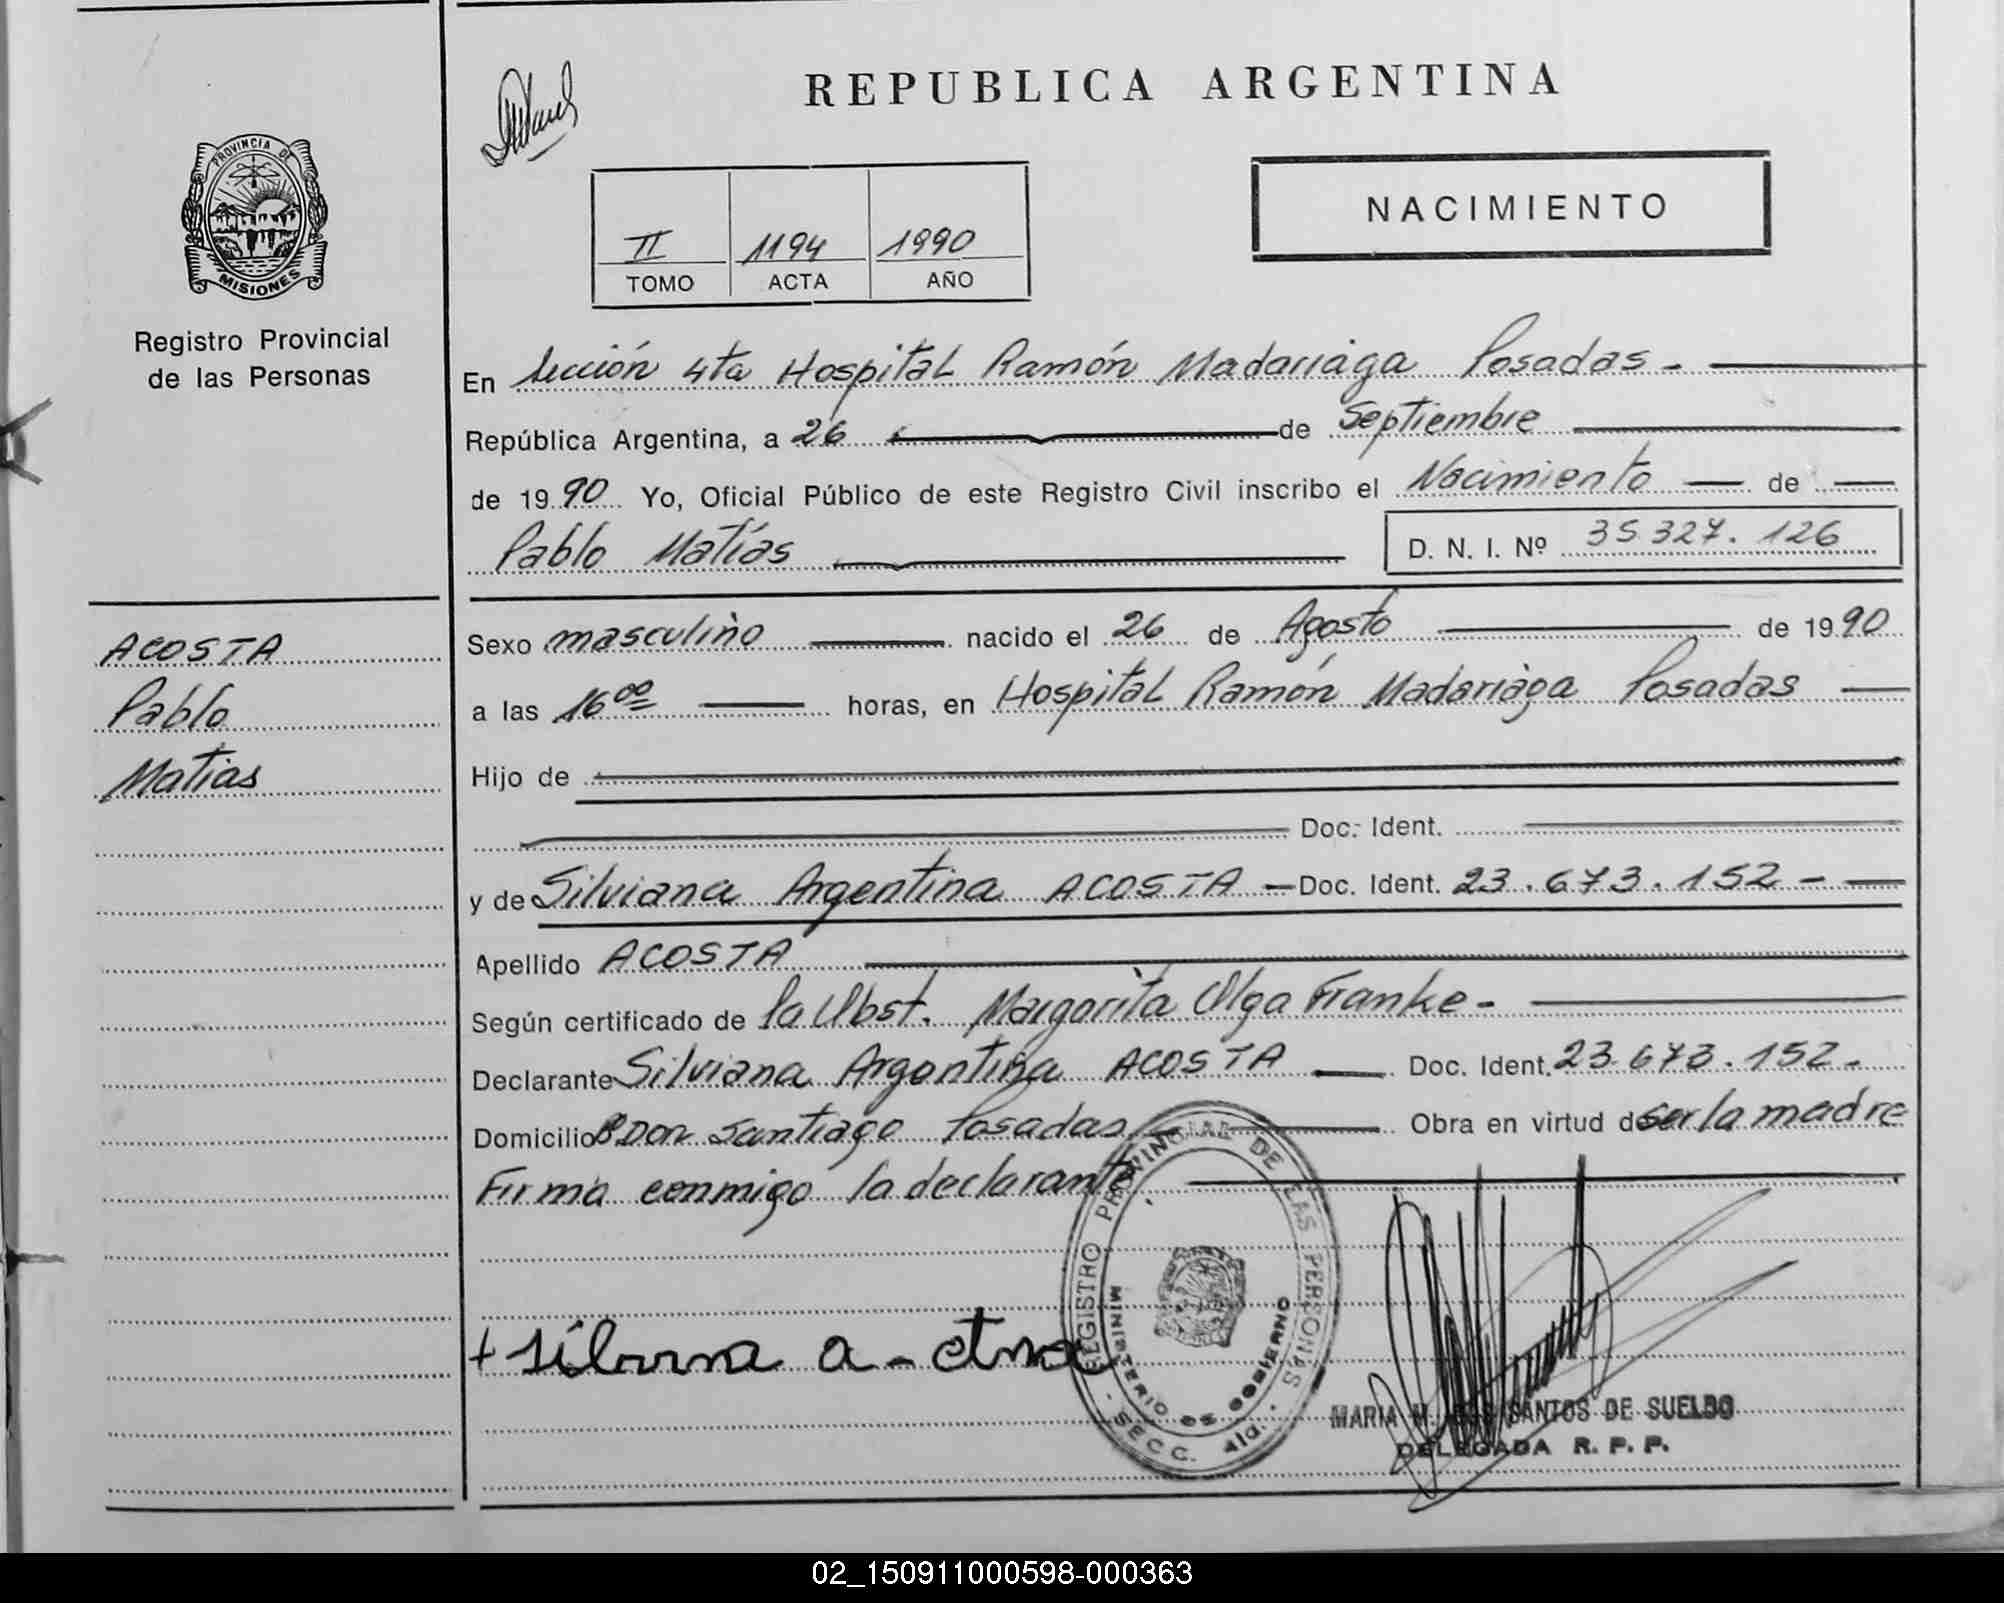 REPUBLICA ARGENTINA
PROVINCIA DE
MISIONES
Registro Provincial
de las Personas
NACIMIENTO
II 1194 1990
TOMO ACTA AÑO
En Sección 4ta Hospital Ramón Madariaga Posadas -
República Argentina, a 26 de Septiembre
de 1990 Yo, Oficial Público de este Registro Civil inscribo el Nacimiento de
Pablo Matías D. N. I. Nº 35 327. 126
ACOSTA
Pablo
Matias
Sexo masculino nacido el 26 de Agosto de 1990
a las 16 00 horas, en Hospital Ramón Madariaga Posadas
Hijo de
Doc. Ident.
y de Silviana Argentina ACOSTA - Doc. Ident. 23.673.152 -
Apellido ACOSTA
Según certificado de la Obst. Margarita Olga Franke -
Declarante Silviana Argentina ACOSTA Doc. Ident. 23.673.152 -
Domicilio Bº Don Santiago Posadas Obra en virtud de ser la madre
Firma conmigo la declarante
REGISTRO PROVINCIAL DE LAS PERSONAS
MINISTERIO DE GOBIERNO
SECC. 4ta.
MARIA SANTOS DE SUELDO
DELEGADA R. P. P.
02_150911000598-000363